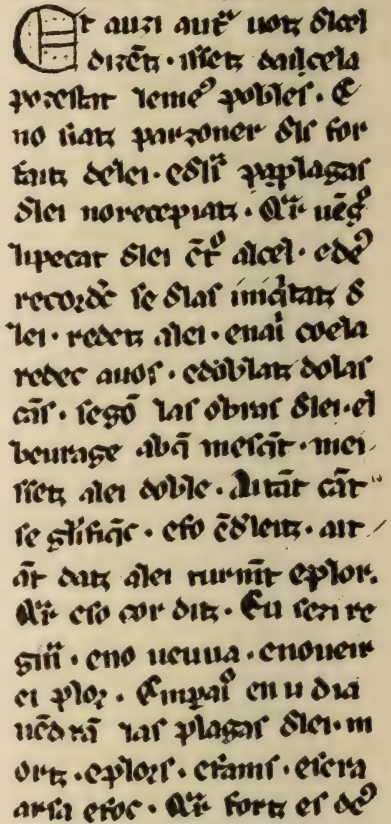 Et auzi autᵃ uotz dl cel
dizẽt · issetz dailcela
pozestat lemeꝰ pobles · E
no siatz parzoner dls for
faitz delei · e dlꝭ paplagas
dlei norecepiatz · Qar uẽgᵒ
lipecat dlei ẽtᵒ alcel · e deꝰ
recordec se dlas iniqᵗtatz d
lei · redetz alei · enaiᵢ coela
redec auos · edoblatz doblas
cãs · segõ las obras dlei · el
beurage abq̃ mesq̃t · mei
ssetz alei doble · Aitãt cãt
se glifiq̃c · efo ẽdleitz · ait
ãt datz alei turmẽt eplor.
Qar eso cor ditz · Eu sezi re
gin̄ · eno ueuua · enoueir
ei plor · Empaiᵒ en u dia
uẽdrã las plagas dlei · m
ortz · eplors · efams · eisera
arsa efoc · Qar fortz es deꝰ